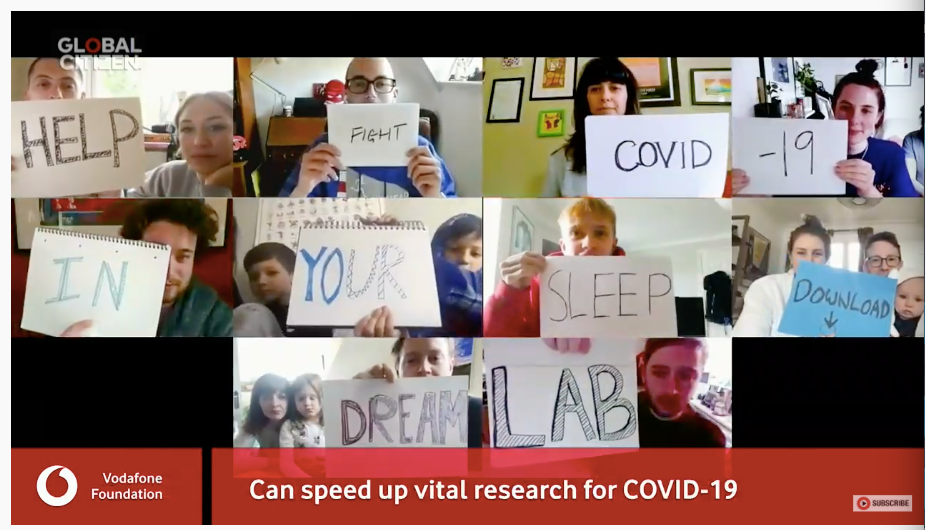 GLOBAL
CITIZEN.
HELP
FIGHT
COVID
-19
IN
YOUR
SLEEP
DOWNLOAD
DREAM
LAB
Vodafone
Foundation
Can speed up vital research for COVID-19
SUBSCRIBE